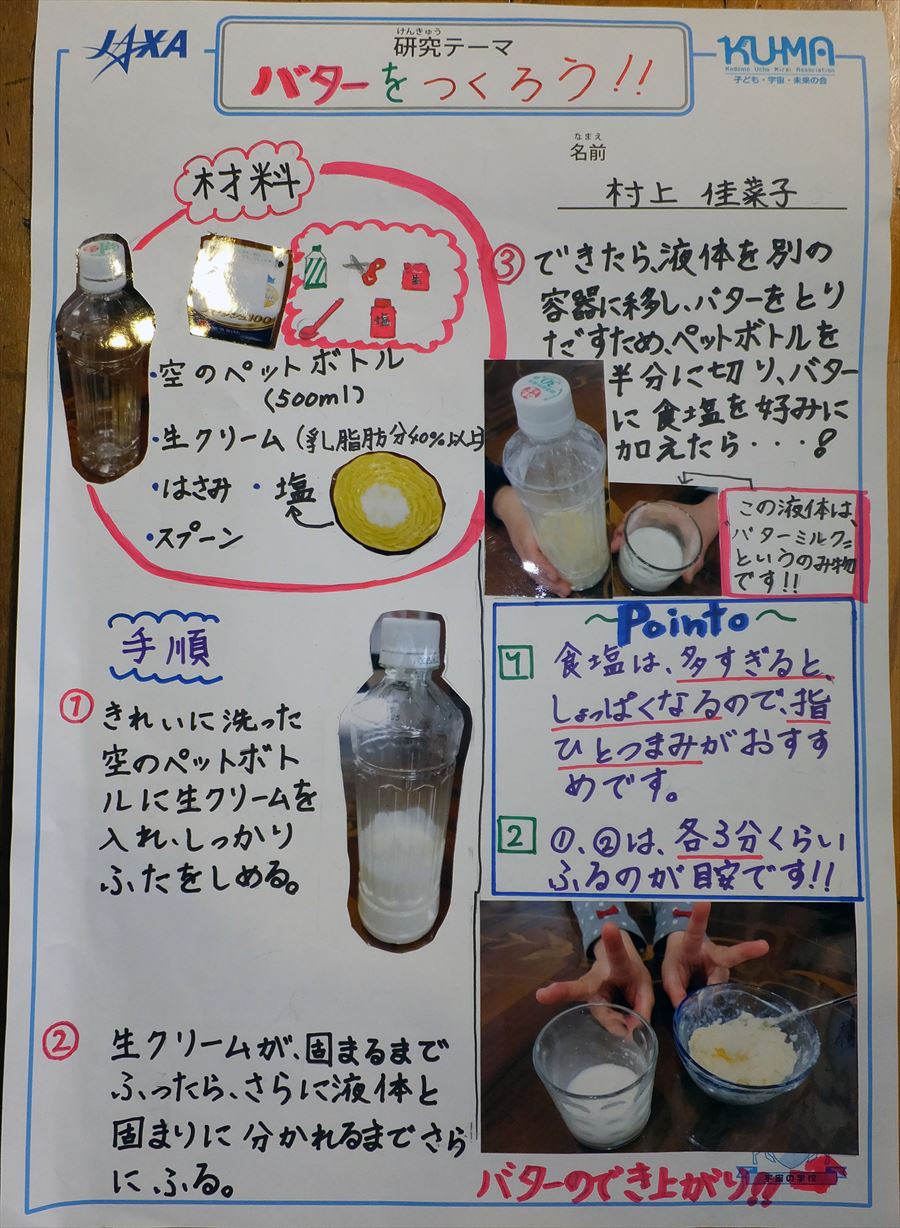 JAXA
けんきゅう
研究テーマ
バターをつくろう!!
KU-MA
Kodomo Uchu Mirai Association
子ども・宇宙・未来の会
なまえ
名前
村上 佳菜子
材料
塩
・空のペットボトル
(500ml)
・生クリーム(乳脂肪分40%以上)
・はさみ ・塩
・スプーン
手順
① きれいに洗った
空のペットボト
ルに生クリームを
入れ、しっかり
ふたをしめる。
② 生クリームが、固まるまで
ふったら、さらに液体と
固まりに分かれるまでさら
にふる。
③ できたら、液体を別の
容器に移し、バターをとり
だすため、ペットボトルを
半分に切り、バター
に食塩を好みに
加えたら・・・!
この液体は、
"バターミルク"
というのみ物
です!!
〜Pointo〜
1 食塩は、多すぎると、
しょっぱくなるので、指
ひとつまみがおすす
めです。
2 ①、②は、各3分くらい
ふるのが目安です!!
バターのでき上がり!!
宇宙の学校